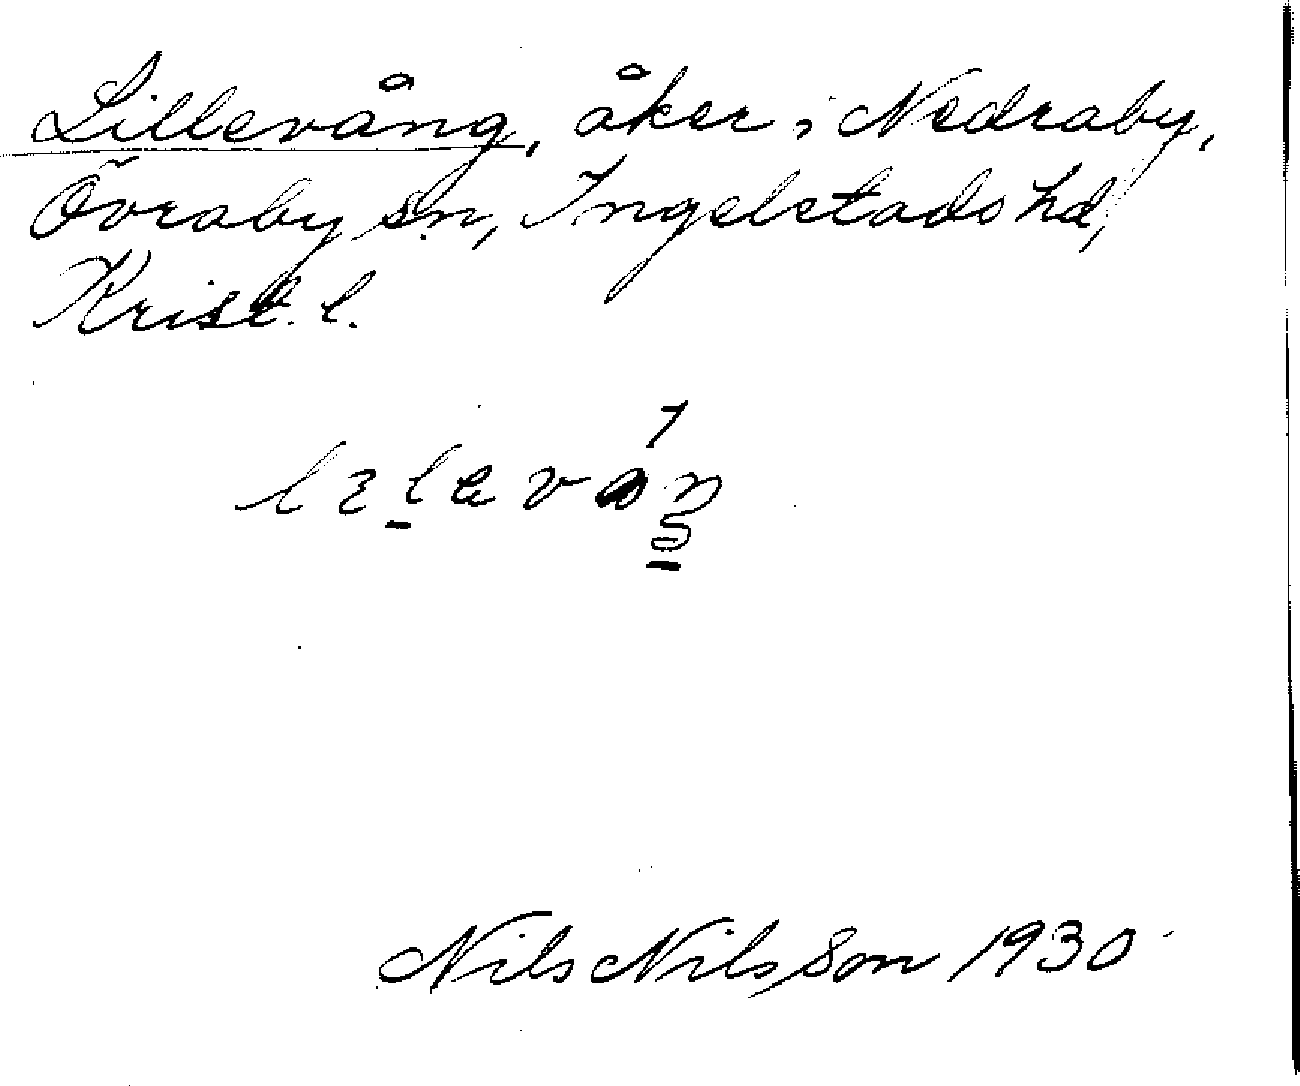 Lillevång, åker i Nedraby,
Övraby sn, Ingelstads hd,
Krist. l.
Nils Nilsson 1930